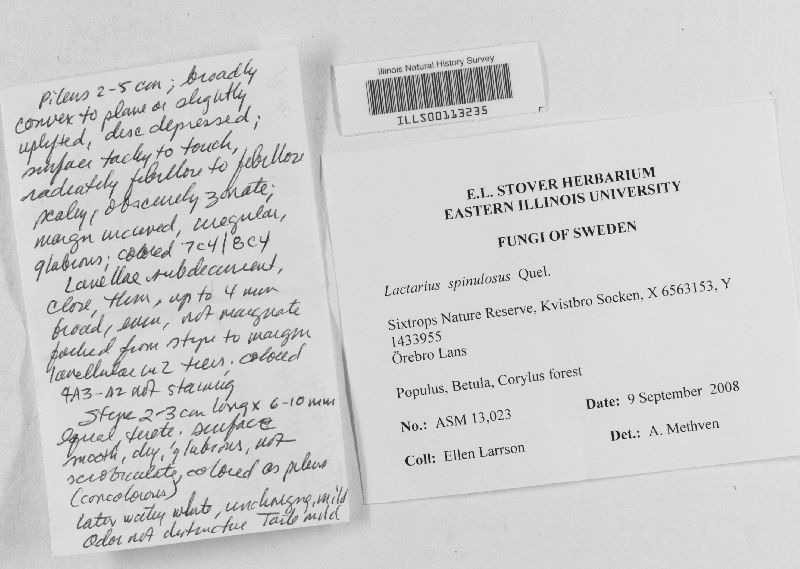 Pileus 2-5 cm; broadly
convex to plane or slightly
uplifted, disc depressed;
surface tacky to touch,
radiately fibrillose to fibrillose
scaly, obscurely zonate;
margin incurved, irregular,
glabrous; colored 7C4/8C4
Lamellae subdecurrent,
close, thin, up to 4 mm
broad, even, not marginate
forked from stipe to margin
lamellulae in 2 tiers, colored
4A3-A2 not staining
Stipe 2-3 cm long x 6-10 mm
equal, terete. surface
smooth, dry, glabrous, not
scrobiculate, colored as pileus
(concolorous)
latex watery white, unchanging, mild
Odor not distinctive Taste mild
Illinois Natural History Survey
ILLS00113235
E.L. STOVER HERBARIUM
EASTERN ILLINOIS UNIVERSITY
FUNGI OF SWEDEN
Lactarius spinulosus Quel.
Sixtrops Nature Reserve, Kvistbro Socken, X 6563153, Y
1433955
Örebro Lans
Populus, Betula, Corylus forest
No.: ASM 13,023 Date: 9 September 2008
Coll: Ellen Larrson Det.: A. Methven